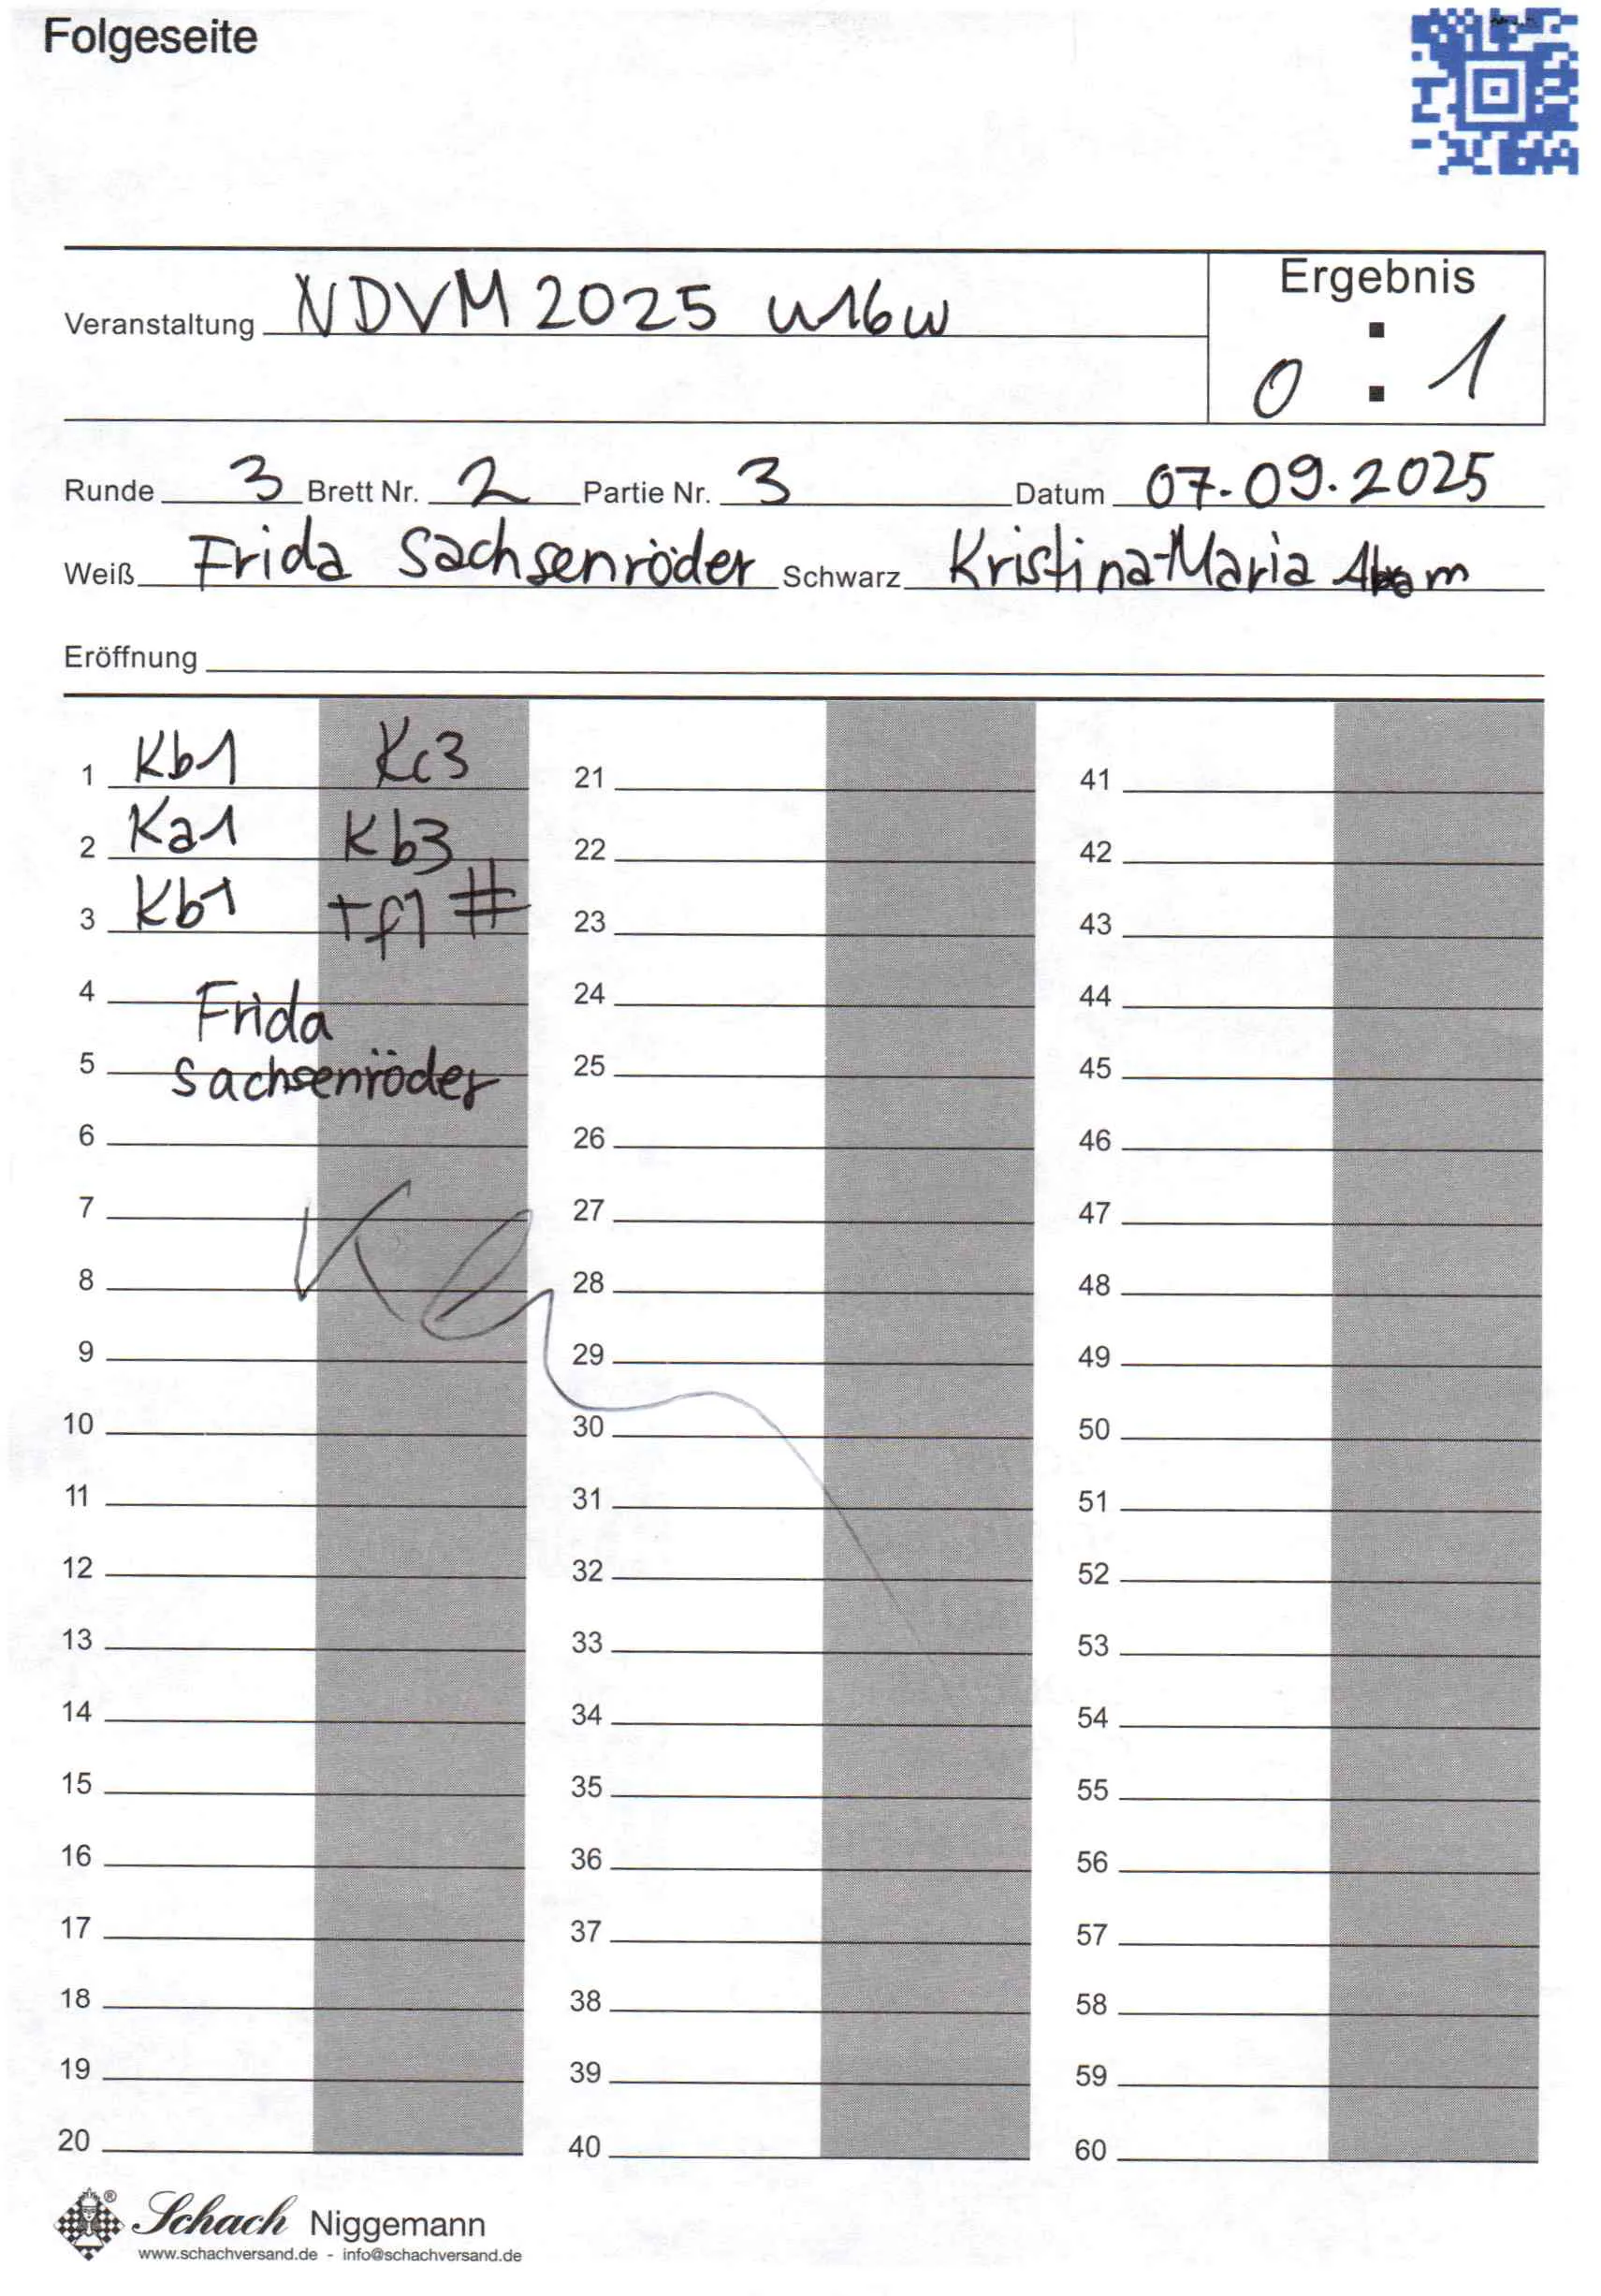 Folgeseite
Veranstaltung NDVM 2025 u16w
Ergebnis
0 : 1
Runde 3 Brett Nr. 2 Partie Nr. 3 Datum 07.09.2025
Weiß Frida Sachsenröder Schwarz Kristina-Maria
Eröffnung
1 Kb1 Kc3 21 41
2 Ka1 Kb3 22 42
3 Kb1 Tf1 # 23 43
4 24 44
Frida
5 25 45
Sachsenröder
6 26 46
7 27 47
8 28 48
9 29 49
10 30 50
11 31 51
12 32 52
13 33 53
14 34 54
15 35 55
16 36 56
17 37 57
18 38 58
19 39 59
20 40 60
® Schach Niggemann
www.schachversand.de - info@schachversand.de